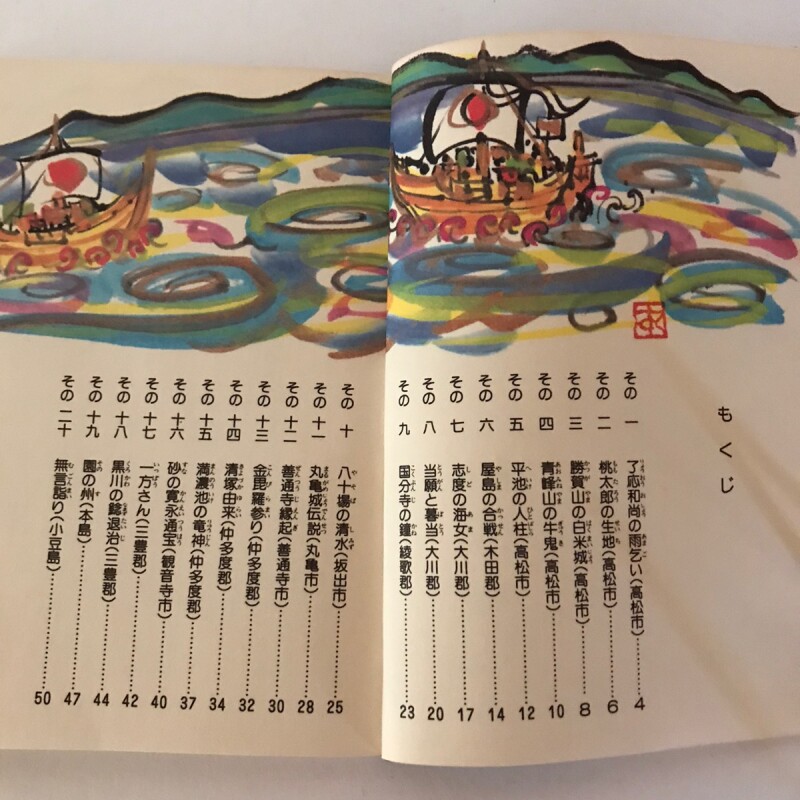 もくじ
その一 了応和尚の雨乞い(高松市)……4
その二 桃太郎の生地(高松市)……6
その三 勝賀山の白米城(高松市)……8
その四 青峰山の牛鬼(高松市)……10
その五 平池の人柱(高松市)……12
その六 屋島の合戦(木田郡)……14
その七 志度の海女(大川郡)……17
その八 当願と暮当(大川郡)……20
その九 国分寺の鐘(綾歌郡)……23
その十 八十場の清水(坂出市)……25
その十一 丸亀城伝説(丸亀市)……28
その十二 善通寺縁起(善通寺市)……30
その十三 金毘羅参り(仲多度郡)……32
その十四 清塚由来(仲多度郡)……34
その十五 満濃池の竜神(仲多度郡)……37
その十六 砂の寛永通宝(観音寺市)……40
その十七 一方さん(三豊郡)……42
その十八 黒川の鯰退治(三豊郡)……44
その十九 園の州(本島)……47
その二十 無言詣り(小豆島)……50